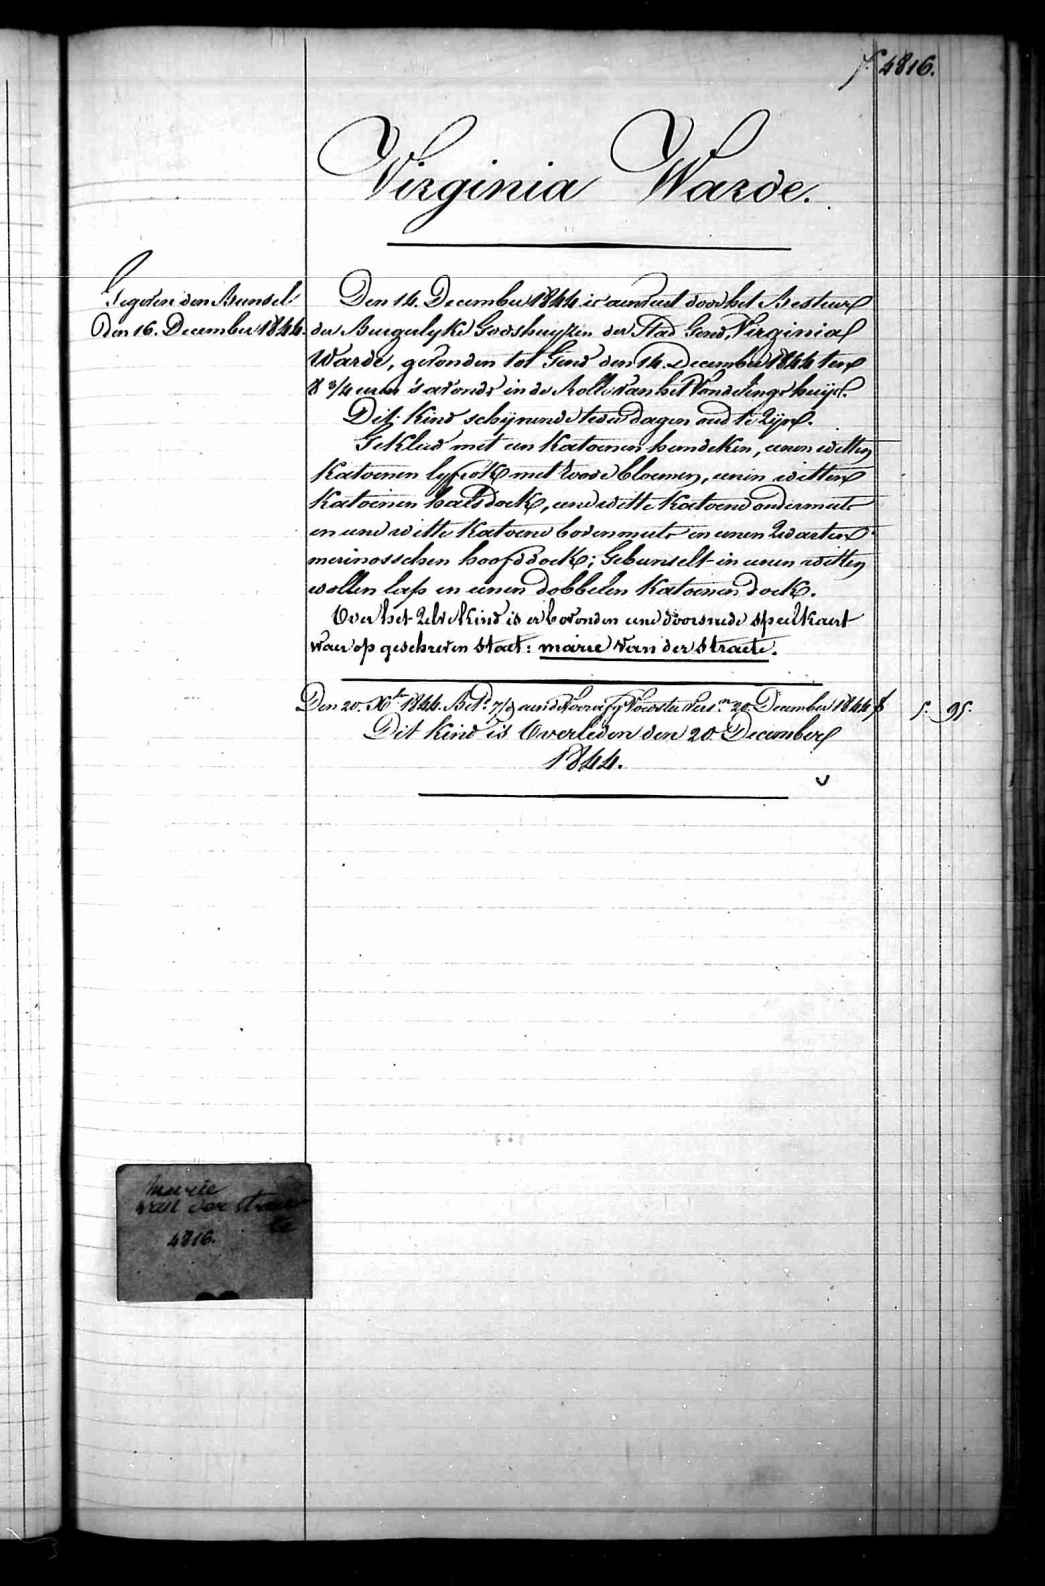 f.° 4816.
Virginia Warde.
Gegeven den Bunsel:
Den 16. December 1844.
Den 14. December 1844 is aenveerd door het Bestuer
der Burgerlyke Godshuyzen der Stad Gend, Virginia
Warde, gevonden tot Gend den 14. December 1844 ten
8 3/4 uren 's avonds in de Rolle van het Vondelings huys.
Dit kind schynende twee dagen oud te Zyn.
Gekleed met een katoenen hemdeken, eenen witten
katoenen lyfrok met roode bloemen, eenen witten
katoenen halsdoek, eene witte katoene ondermuts
en eene witte katoene bovenmuts en eenen Zwarten
merinosschen hoofddoek; Gebunselt in eenen witten
wollen lap en eenen dobbelen katoenen doek.
Over het Zelve kind is er bevonden eene doorsnede speelkaert
waer op geschreven staet: marie van der straete.
Den 20. Xbr 1844. Bet. aen de Voedster 20 December 1844 f 5. 95.
Dit kind is Overleden den 20 December
1844.
marie
van der strae
te
4816.